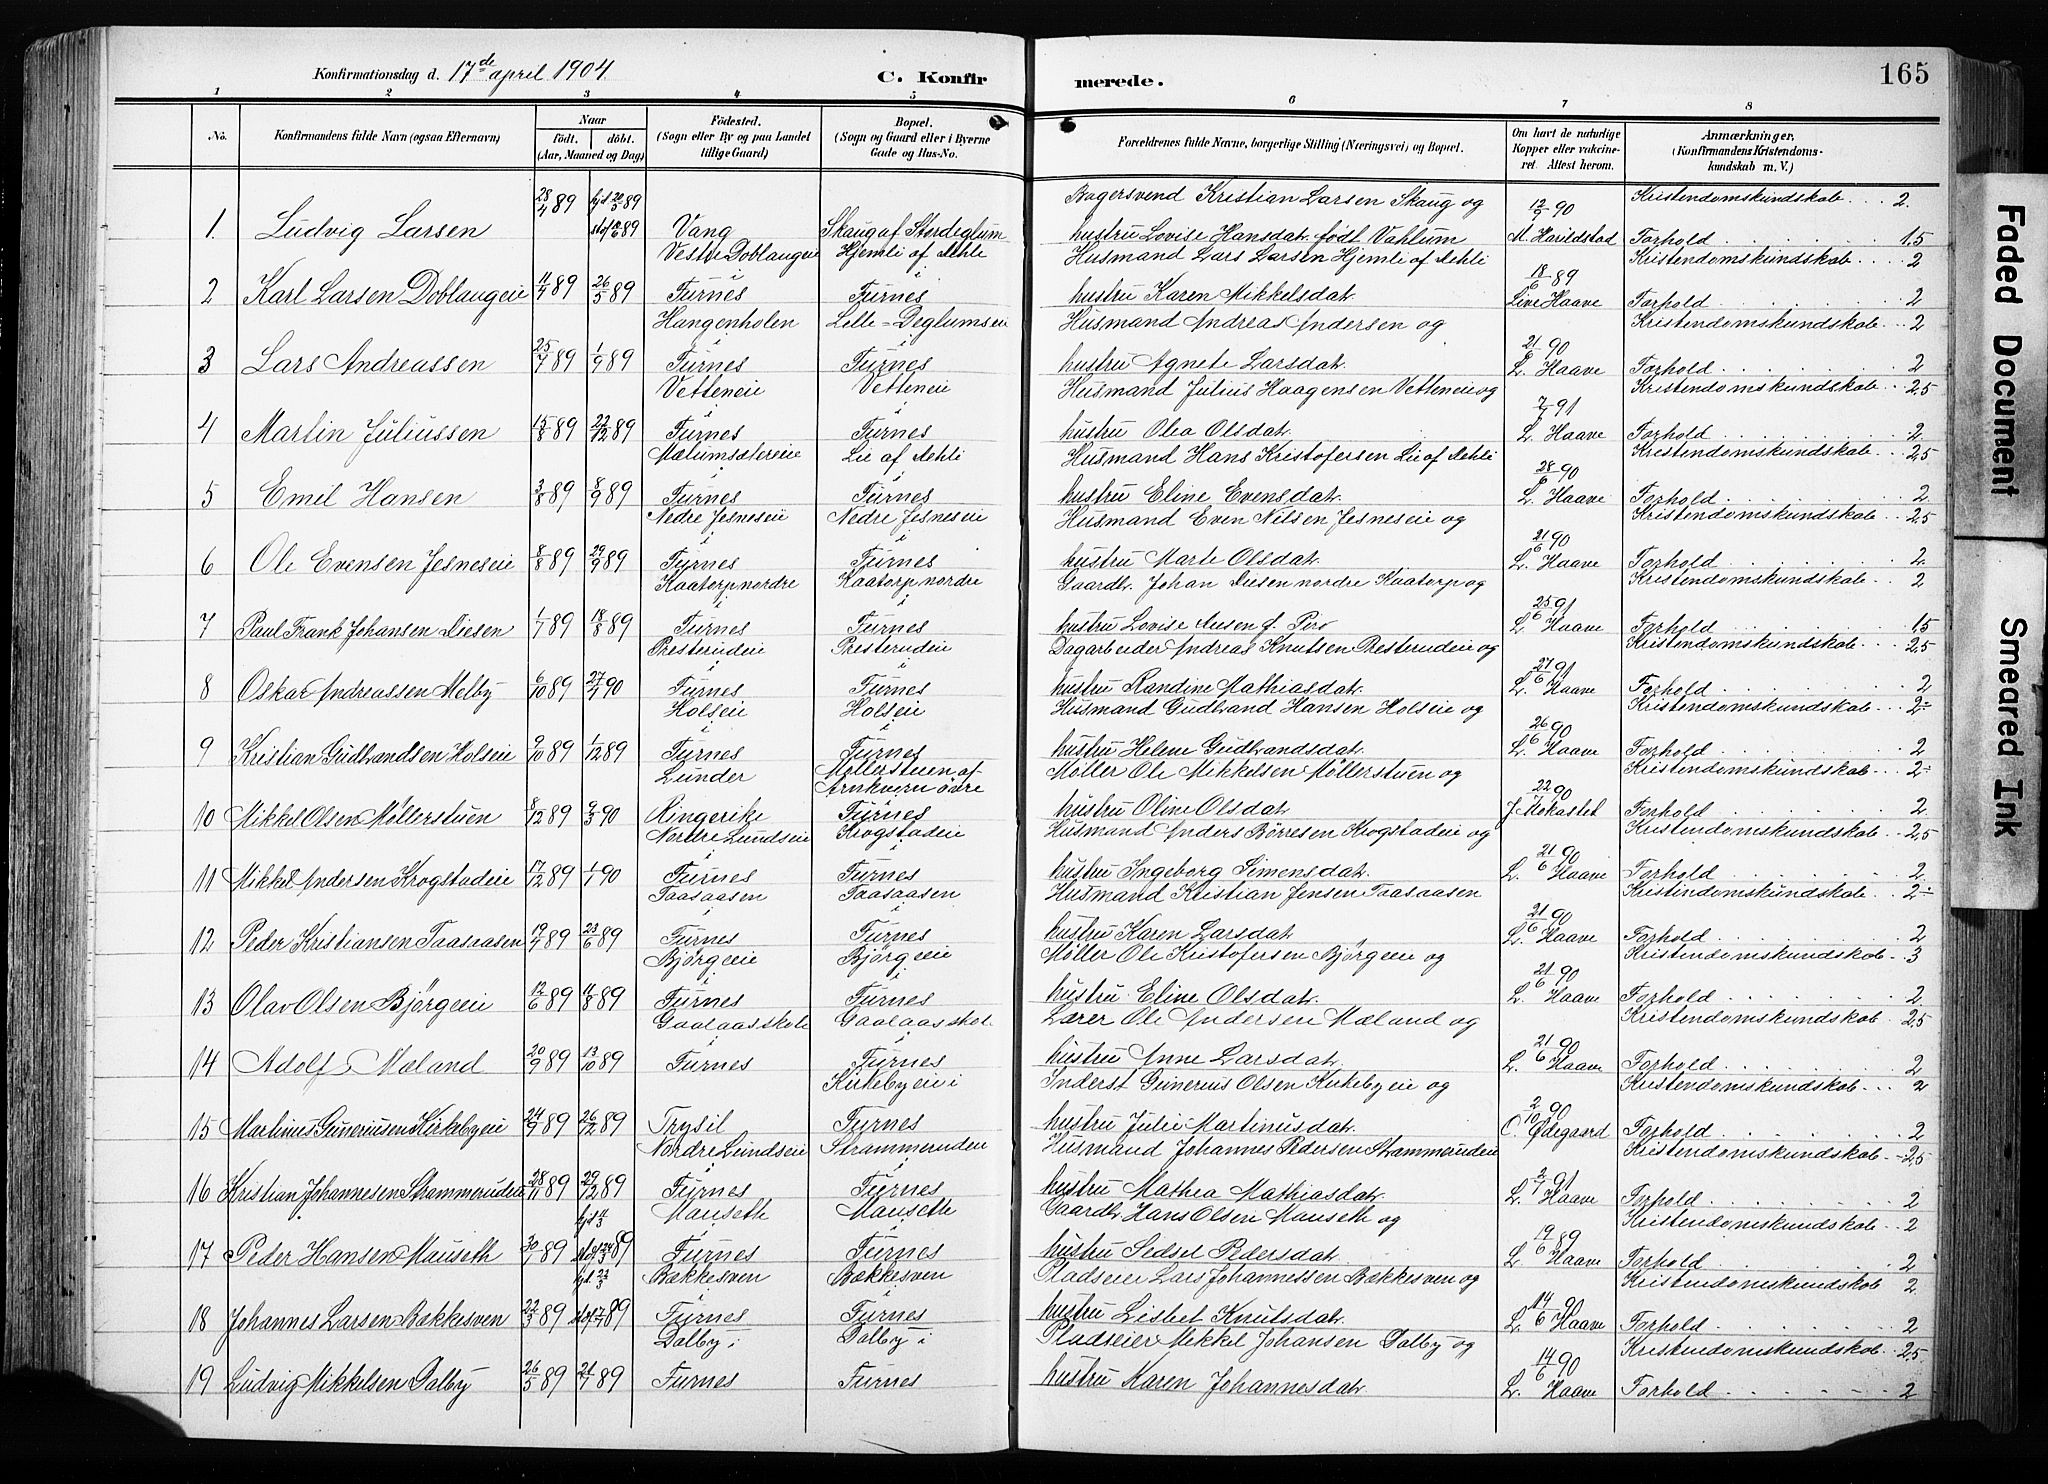 Konfirmationsdag d. 17de april 1904.
C. Konfirmerede.
165
1 2 3 4 5 6 7 8
No.
Konfirmandens fulde Navn (ogsaa Efternavn)
Naar
født. døbt.
(Aar, Maaned og Dag)
Fødested.
(Sogn eller By og paa Landet
tillige Gaard)
Bopæl.
(Sogn og Gaard eller i Byerne
Gade og Hus-No.
Forældrenes fulde Navne, borgerlige Stilling (Næringsvei) og Bopæl.
Om havt de naturlige
Kopper eller vakcine-
ret. Attest herom.
Anmærkninger.
(Konfirmandens Kristendoms-
kundskab m. V.)
28/4 89 hjd 20/5 89 Bagersvend Kristian Larsen Skaug og 12/9 90 Kristendomskundskab . . . 2.
1. Ludvig Larsen Vang Skaug af Stordeglum hustru Lovise Hansdat. født Vahlum M. Harildstad Forhold . . . 1.5
Vestre Doblaugeie Hjemli af Aehli Husmand Lars Larsen Hjemli af Aehli Kristendomskundskab . . . 2
2 Karl Larsen Doblaugeie 26/5 89 i Furnes i Furnes hustru Karen Mikkelsdat. 18/6 89 Live Haave Forhold . . . 2
Hangenholen Lille-Deglumseie Husmand Andreas Andersen og Kristendomskundskab . . . 2
3 Lars Andreassen 25/7 89 1/9 89 i Furnes i Furnes hustru Agnete Larsdat. L. Haave Forhold . . . 2
Vetteneie Vetteneie Husmand Julius Haagensen Vetteneie og Kristendomskundskab . . . 2,5
4 Martin Juliussen 15/8 89 22/12 89 i Furnes i Furnes hustru Olea Olsdat. L. Haave Forhold . . . 2
Mælumsætereie Lie af Aehli Husmand Hans Kristofersen Lie af Aehli Kristendomskundskab . . . 2,5
5 Emil Hansen 3/8 89 8/9 89 i Furnes i Furnes hustru Eline Evensdat. L. Haave Forhold . . . 2
Nedre Jesneseie Nedre Jesneseie Husmand Even Nilsen Jesneseie og Kristendomskundskab . . . 2,5
6 Ole Evensen Jesneseie 8/8 89 29/9 89 i Furnes i Furnes hustru Marte Olsdat. 21/6 90 L. Haave Forhold . . . 2
Kaatorp nordre Kaatorp nordre Gaardb. Johan Diesen nordre Kaatorp og Kristendomskundskab . . . 2
7 Paul Frank Johansen Diesen 1/7 89 18/8 89 i Furnes i Furnes hustru Lovise Diesen f. Piro 25/6 91 L. Haave Forhold . . . 1.5
Presterudeie Presterudeie Dagarbeider Andreas Knutsen Presterudeie og Kristendomskundskab . . . 2,5
8 Oskar Andreassen Melby 6/10 89 27/4 90 i Furnes i Furnes hustru Randine Mathiasdat. 27/6 91 L. Haave Forhold . . . 2
Holseie Holseie Husmand Gudbrand Hansen Holseie og Kristendomskundskab . . . 2-
9 Kristian Gudbrandsen Holseie 9/10 89 1/12 89 i Furnes i Furnes hustru Helene Gudbrandsdat. 26/6 90 L. Haave Forhold . . . 2
Lunder Møllerstuen af Arnkvern øvre Møller Ole Mikkelsen Møllerstuen og Kristendomskundskab . . . 2-
10 Mikkel Olsen Møllerstuen 8/12 89 9/3 90 Ringerike i Furnes hustru Oline Olsdat. J. Mokastet Forhold . . . 2
Nordre Lundseie Krogstadeie Husmand Anders Børresen Krogstadeie og Kristendomskundskab . . . 2,5
11 Mikkel Andersen Krogstadeie 17/12 89 1/1 90 i Furnes i Furnes hustru Ingeborg Simensdat. 21/6 90 L. Haave Forhold . . . 2
Taasaasen Taasaasen Husmand Kristian Jensen Taasaasen Kristendomskundskab . . . 2-
12 Peder Kristiansen Taasaasen 23/6 89 i Furnes i Furnes hustru Karen Larsdat. 21/6 90 L. Haave Forhold . . . 2
Bjørgeeie Bjørgeeie Møller Ole Kristofersen Bjørgeeie og Kristendomskundskab . . . 3
13 Olav Olsen Bjørgeeie 12/6 89 11/8 89 i Furnes i Furnes hustru Eline Olsdat. 21/6 90 L. Haave Forhold . . . 2
Gaalaasskole Gaalaasskol. Lærer Ole Andersen Mæland og Kristendomskundskab . . . 2,5
14 Adolf Mæland 20/9 89 13/10 89 i Furnes i Furnes hustru Anne Larsdat. 21/6 90 L. Haave Forhold . . . 2
Kirkebyeie i Inderst Gunerius Olsen Kirkebyeie og Kristendomskundskab . . . 2
15 Martinus Guneriusen Kirkebyeie 26/12 89 Trysil Furnes hustru Julie Martinusdat. 2/10 90 O. Ødegaard Forhold . . . 2
Nordre Lundseie Strammerudeie Husmand Johannes Pedersen Strammerudeie Kristendomskundskab . . 2,5
16 Kristian Johannesen Strammerudeie 28/11 89 29/12 89 i Furnes i Furnes hustru Mathea Mathiasdat. L. Haave Forhold . . . 2
hjd Mauseth Mauseth Gaardb. Hans Olsen Mauseth og Kristendomskundskab . . . 2
17 Peder Hansen Mauseth 30/1 89 i Furnes i Furnes hustru Sedsel Pedersdat. 19/6 89 L. Haave Forhold . . . 2
hjd Bækkesven Bækkesven Pladseier Lars Johannessen Bækkesven og Kristendomskundskab . . . 2.
18 Johannes Larsen Bækkesven 22/3 89 i Furnes i Furnes hustru Lisbet Knutsdat. 14/6 90 L. Haave Forhold . . . 2
Dalby i Dalby i Pladseier Mikkel Johansen Dalby og Kristendomskundskab . . 2,5
19 Ludvig Mikkelsen Dalby 26/5 89 21/7 89 Furnes Furnes hustru Karen Johannesdat. 14/6 90 L. Haave Forhold . . . 2
Faded Document
Smeared Ink